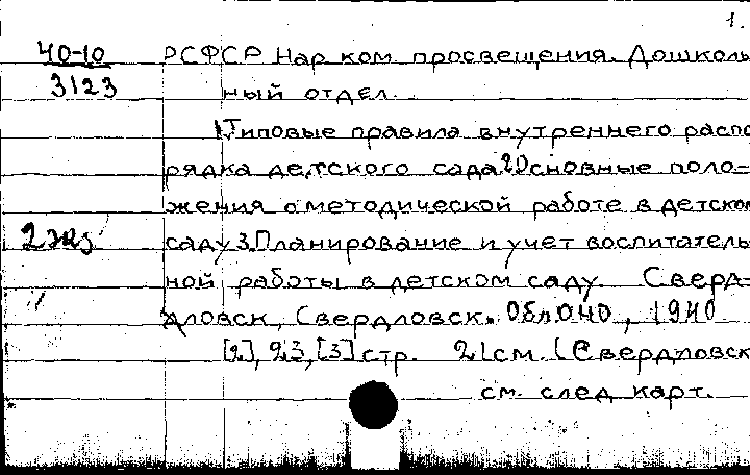 1.
40-10 РСФСР. Нар. ком. просвещения. Дошколь
3123 ный отдел.
1.Типовые правила внутреннего распо
рядка детского сада 2.Основные поло-
жения о методической работе в детском
2 экз саду 3.Планирование и учет воспитатель
ной работы в детском саду. Сверд-
ловск, Свердловск. ОблОНО, 1940
[2], 23, [3] стр. 21см. (Свердловск
см. след карт.